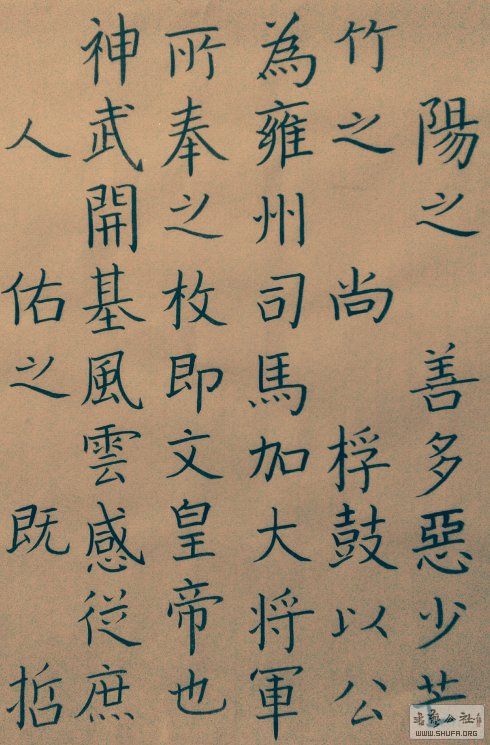 陽之 善多惡少芒
竹之 尚 桴鼓以公
為雍州司馬加大将軍
所奉之枚即文皇帝也
神武開基風雲感従庶
人 佑之 既 哲
書藝公社
WWW.SHUFA.ORG